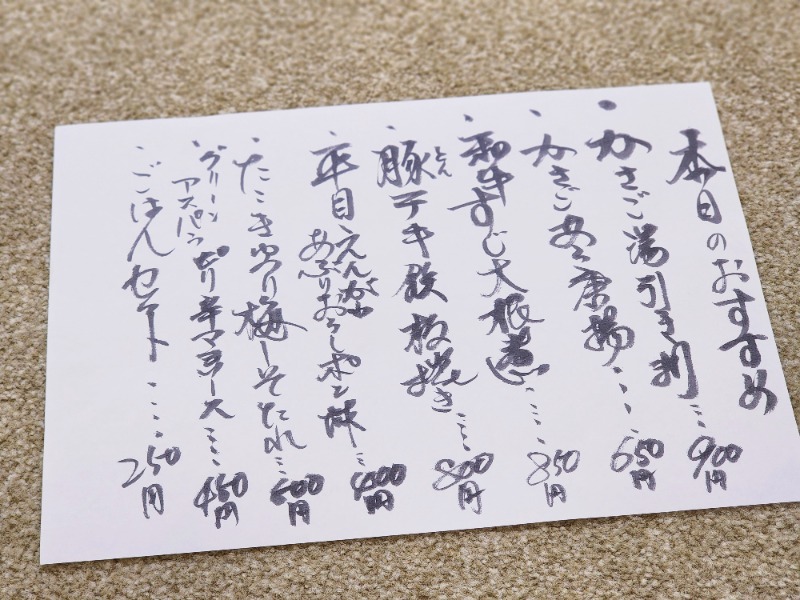 本日のおすすめ
・かさご湯引き刺…900円
・かさごあら唐揚…650円
・和牛すじ大根煮…850円
・豚テキ鉄板焼き…800円
とん
・平目えんがわ
あぶりおろしポン酢…400円
・たこきゅうり梅しそたれ…500円
・グリーン
アスパラ
ピリ辛マヨソース…450円
・ごはんセット…250円